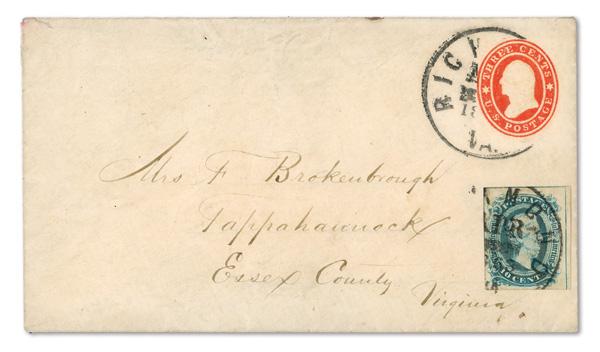 RICH
VA.
THREE CENTS
U.S. POSTAGE
Mrs F Brokenbrough
Tappahannock
Essex County
Virginia
POSTAGE
10 CENTS